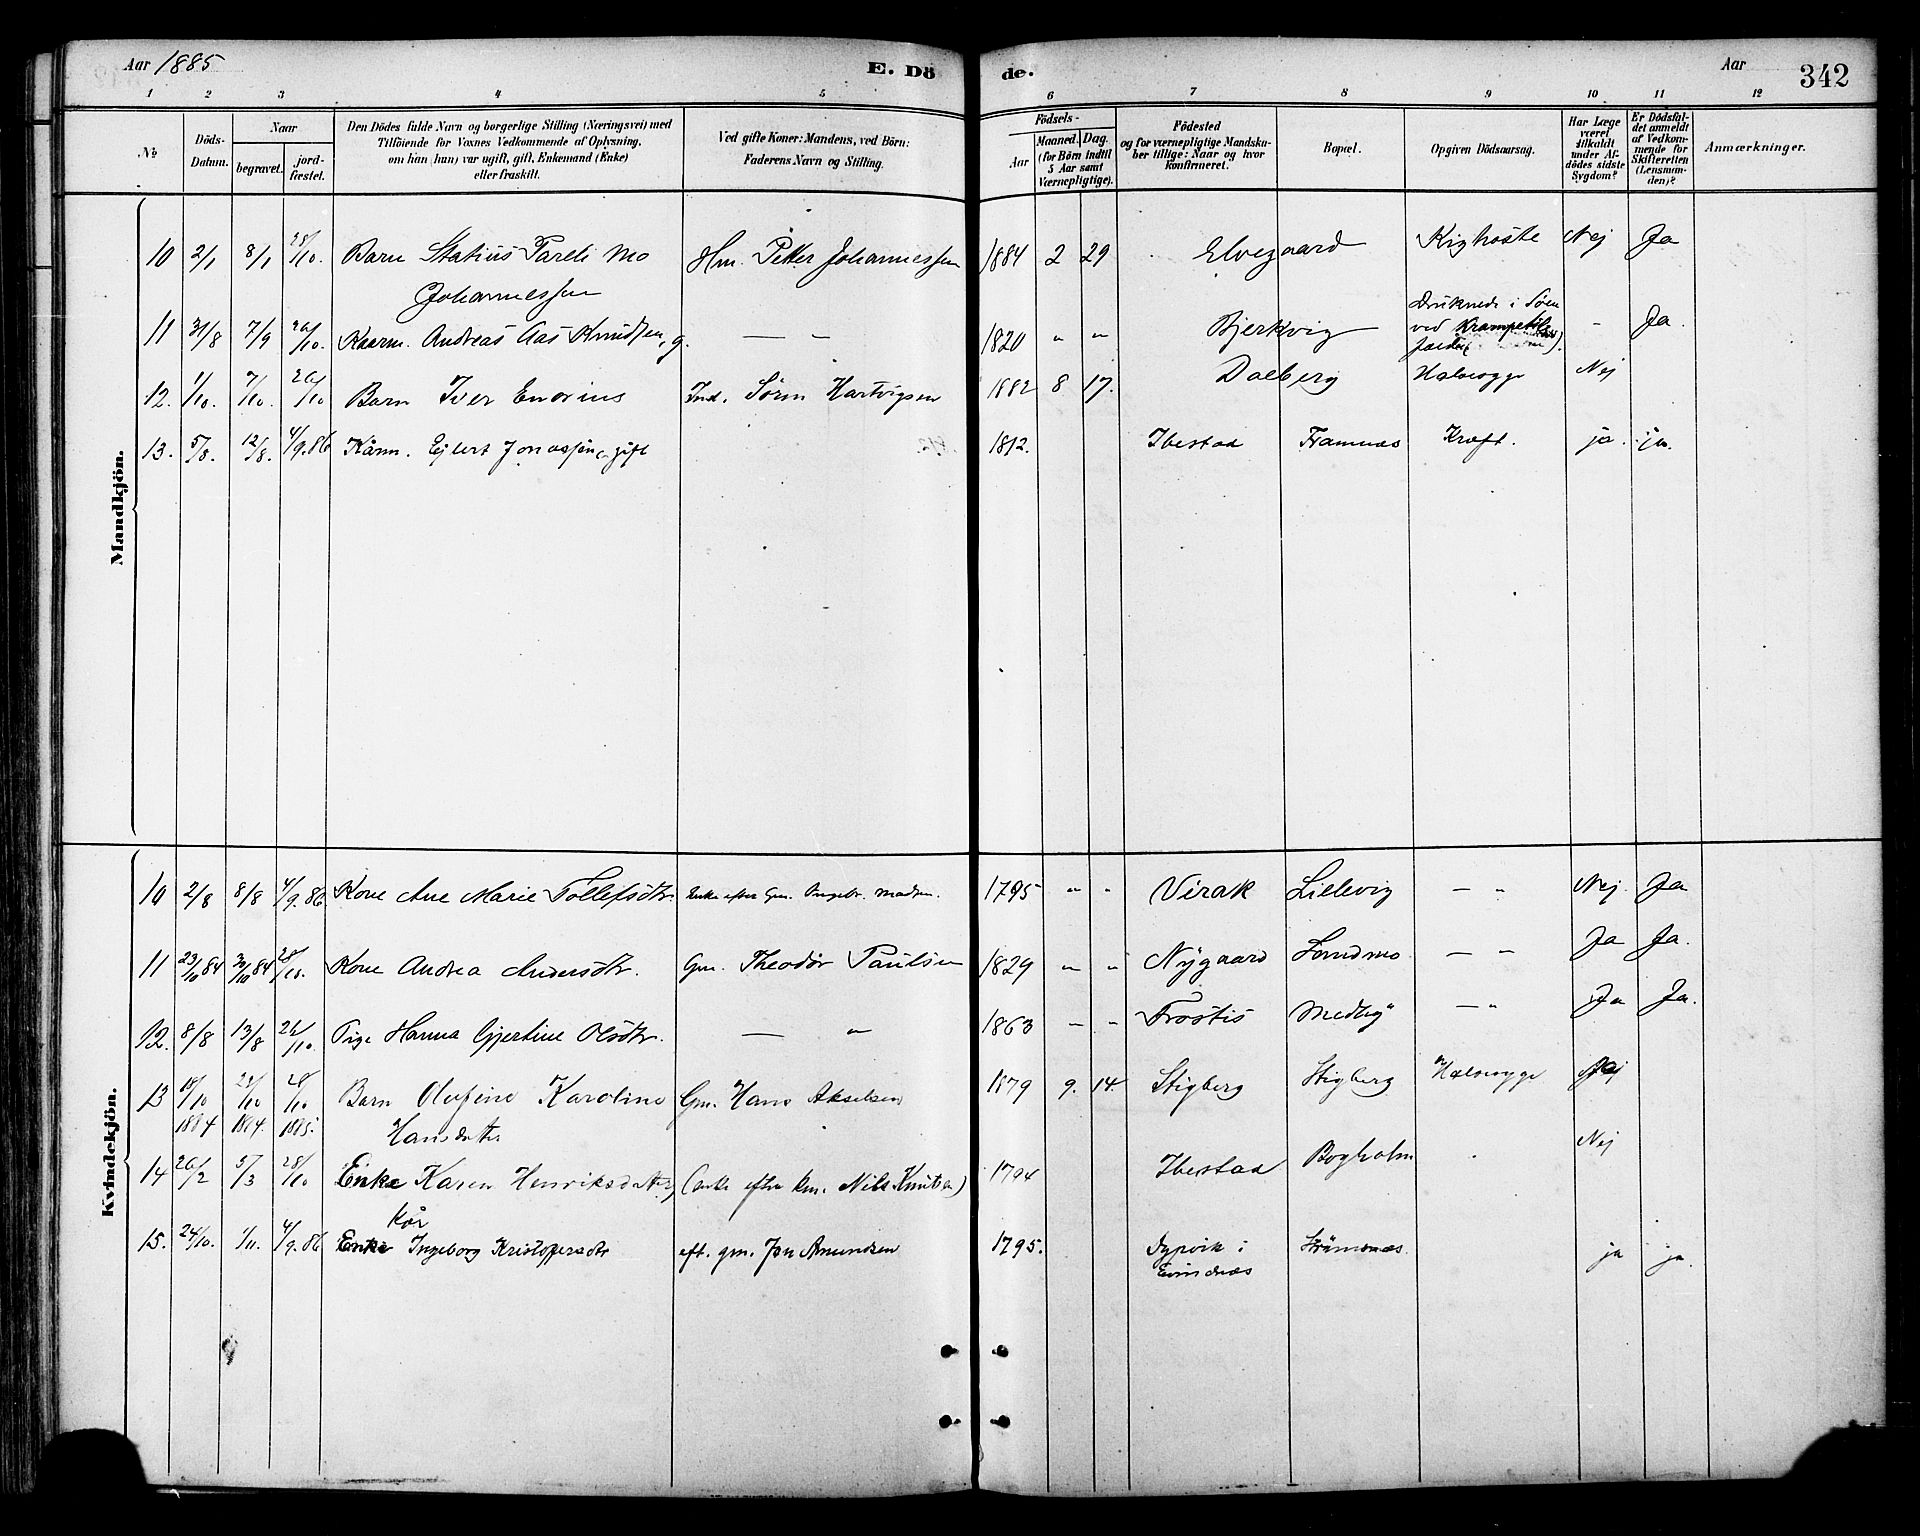 Aar 1885 E. Döde. Aar 342
1 2 3 4 5 6 7 8 9 10 11 12
No
Döds-Datum.
Naar
begravet.
jord-fæstet.
Den Dödes fulde Navn og borgerlige Stilling (Næringsvei) med
Tilföiende for Voxnes Vedkommende af Oplysning,
om han (hun) var ugift, gift, Enkemand (Enke)
eller fraskilt.
Ved gifte Koner: Mandens, ved Börn:
Faderens Navn og Stilling.
Födsels-
Aar
Maaned. Dag.
(for Börn indtil
5 Aar samt
Værnepligtige).
Födested
og for værnepligtige Mandska-
ber tillige: Naar og hvor
konfirmeret.
Bopæl.
Opgiven Dödsaarsag.
Har Læge
været
tilkaldt
under Af-
dödes sidste
Sygdom?
Er Dödsfal-
det anmeldt
af Vedkom-
mende for
Skifteretten
(Lensman-
den)?
Anmærkninger.
Mandkjön.
10 2/1 8/1 28/10. Barn Statius Pareli Mo Hm. Petter Johannessen 1884 2 29 Elvegaard Kighoste Nej Ja
Johannessen
11 31/8 7/9 20/10. Kaarm. Andreas Aas Knudsen, g. — " — 1820 " " Bjerkvig Druknede i Søen ved - Ja.
12. 1/10. 7/10. 20/10 Barn Iver Enorius Ind. Sørin Hartvigsen 1882 8 17. Dalberg Halsesyge Nej
13. 5/8. 12/8. 4/9.86 Kårm. Ejlert Jonassen, gift 1812. Ibestad Framnæs Kræft. ja. ja.
Kvindekjön.
10 2/8 8/8 4/9.86 Kone Ane Marie Tollefsdtr. Enke efter Gm. Ingebr. Madsen. 1795 " " Virak Lillevig — " Nej. Ja
11 23/10 84 30/10 84 28/10. Kone Andrea Andersdtr. Gm. Theodor Paulsen 1829 " " Nygaard Sandmo — " Ja Ja.
12. 8/8 13/8 /10. Pige Hanna Gjertine Olsdtr. — " 1863 " " Trostis Medby — " Ja Ja.
13 18/10 1884 22/10 1884. 28/10 1885. Barn Olufine Karoline Gm. Hans Akselsen 1879 9. 14 Stigberg Stigberg Halsesyge
Hansdatter
14 20/2 5/3 28/10 Enke Karen Henriksdatter, (enke efter km. Nils Knutsen) 1794 Ibestad Bogholm Nej
15. 24/10. 1/11. 4/9.86 Kår Enke Ingeborg Kristoffersdtr eft. gm. Jon Amundsen 1795. Dypvik i Evindnæs Strømsnæs. ja ja.